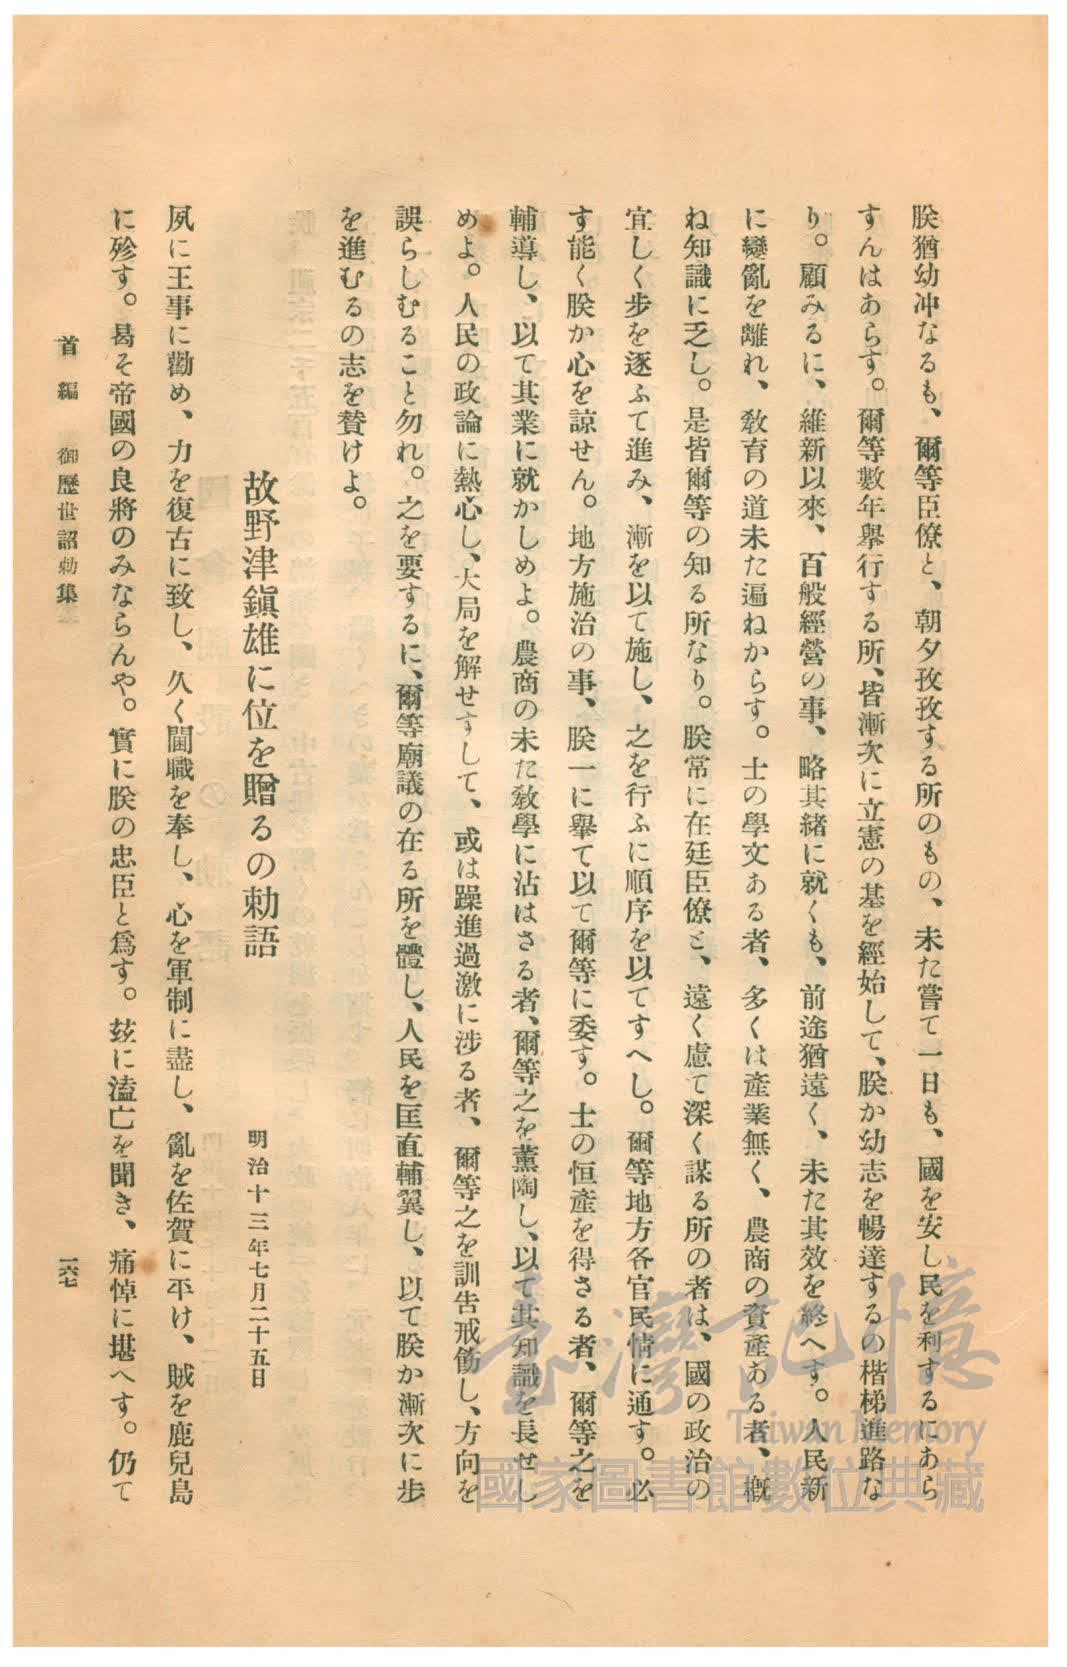 朕猶幼冲なるも、爾等臣僚と、朝夕孜孜する所のもの、未た嘗て一日も、國を安し民を利するにあら
すんはあらす。爾等數年擧行する所、皆漸次に立憲の基を經始して、朕か幼志を暢達するの楷梯進路な
り。顧みるに、維新以來、百般經營の事、略其緒に就くも、前途猶遠く、未た其效を終へす。人民新
に變亂を離れ、敎育の道未た遍ねからす。士の學文ある者、多くは產業無く、農商の資產ある者、槪
ね知識に乏し。是皆爾等の知る所なり。朕常に在廷臣僚と、遠く慮て深く謀る所の者は、國の政治の
宜しく步を逐ふて進み、漸を以て施し、之を行ふに順序を以てすへし。爾等地方各官民情に通す。必
す能く朕か心を諒せん。地方施治の事、朕一に擧て以て爾等に委す。士の恒產を得さる者、爾等之を
輔導し、以て其業に就かしめよ。農商の未た敎學に沾はさる者、爾等之を薰陶し、以て其知識を長せし
めよ。人民の政論に熱心し、大局を解せすして、或は躁進過激に涉る者、爾等之を訓吿戒飭し、方向を
誤らしむること勿れ。之を要するに、爾等廟議の在る所を體し、人民を匡直輔翼し、以て朕か漸次に步
を進むるの志を賛けよ。
故野津鎭雄に位を贈るの勅語
明治十三年七月二十五日
夙に王事に勤め、力を復古に致し、久く閫職を奉し、心を軍制に盡し、亂を佐賀に平け、賊を鹿兒島
に殄す。曷そ帝國の良將のみならんや。實に朕の忠臣と爲す。玆に溘亡を聞き、痛悼に堪へす。仍て
首編 御歷世詔勅集
一六七
臺灣記憶
Taiwan Memory
國家圖書館數位典藏